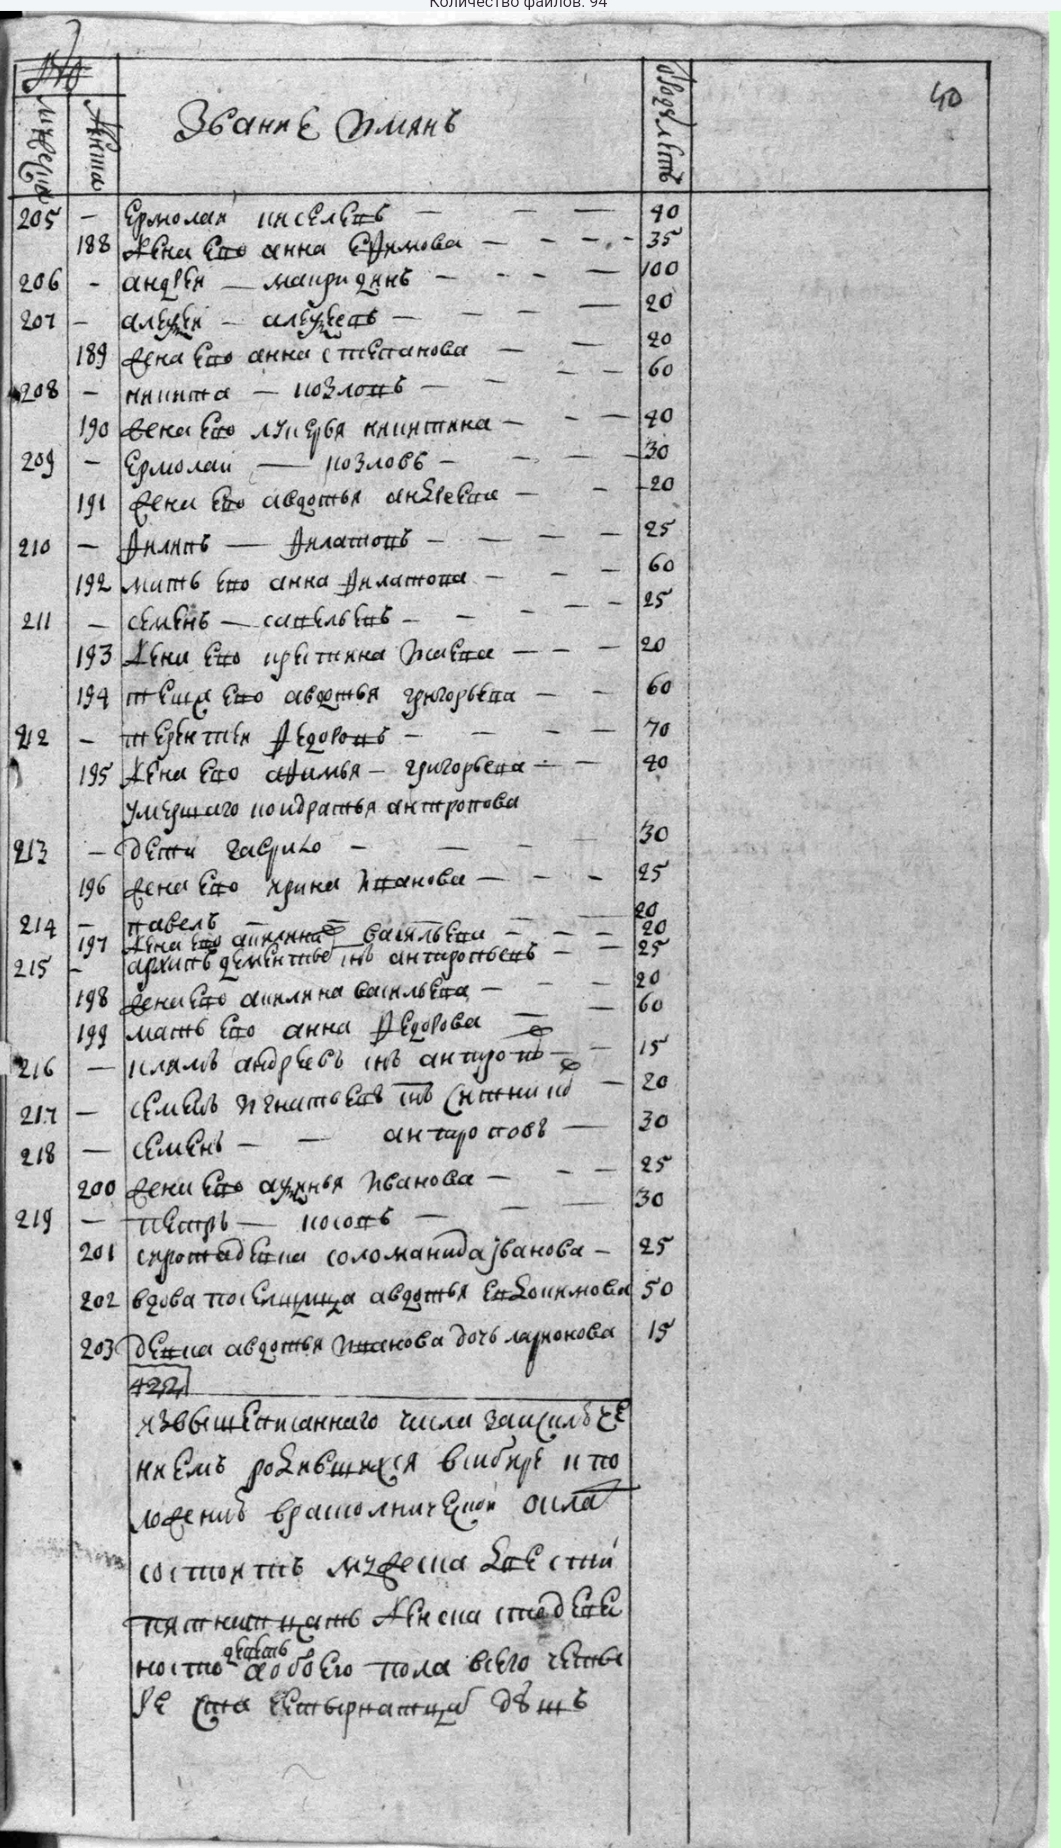 Количество файлов: 94
40
№
Мужеска
Женска
Звание имянъ
оного лѣтъ
205 — Ермолаи киселевъ — — — 40
188 жена ево анна ефимова — — — 35
206 — андреи — маиридинъ — — — 100
207 — алеѯеи — алеѯеевъ — — — 20
189 жена ево анна степанова — — 20
208 — никита — козловъ — — — 60
190 жена ево лукерья никитина — — — 40
209 — Ермолаи — козловъ — — — 30
191 жена ево авдотья андреева — — 20
210 — филипъ — филатовъ — — — 25
192 мать ево анна филатова — — 60
211 — семенъ — савельевъ — — — 25
193 жена ево кристина исаева — — — 20
194 теща ево авдотья григорьева — — 60
212 — терентеи федоровъ — — — 70
195 жена ево афимья — григорьева — — 40
умершаго кондратья антропова
213 — дети гаврило — — — 30
196 жена ево ирина иванова — — — 25
214 — павелъ — — 20
197 жена ево акилина васильева — — — 20
215 — архипъ дементьевъ снъ антроповъ — — 25
198 жена ево акилина васильева — — 20
199 мать ево анна федорова — — 60
216 — климъ андреевъ снъ антропов — — 15
217 — семенъ игнатьевъ снъ ситников — 20
218 — семенъ — — антроповъ — 30
200 жена ево аѯинья иванова — — — 25
219 — петръ — косовъ — — — 30
201 сиротадевка соломанида иванова — 25
202 вдова поселщица авдотья евдокимова 50
203 девка авдотья иванова дочь ларионова 15
422
извышеписаннаго числа заисключе
ниемъ родившихся всибире ипо
ложенныхъ
состоитъ мужеска двести
пятнитцать женска сто девя
носто девять аобоего пола всего четы
ре ста четырнатцать душъ